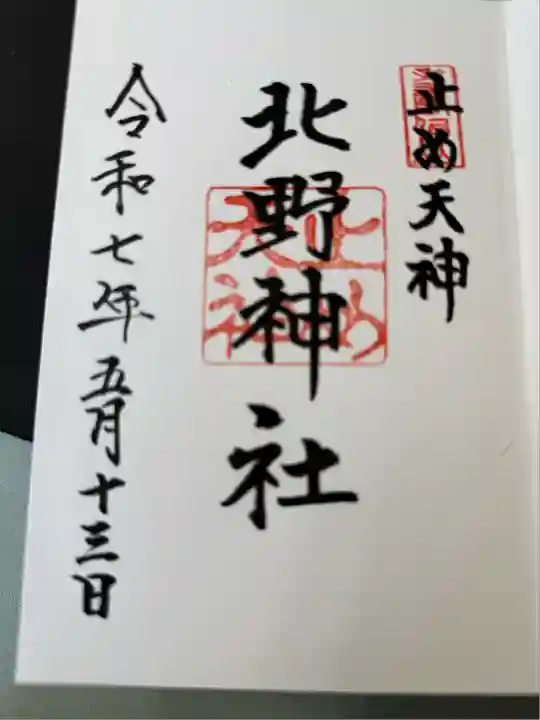 止め天神
北野神社
止め天神
令和七年五月十三日